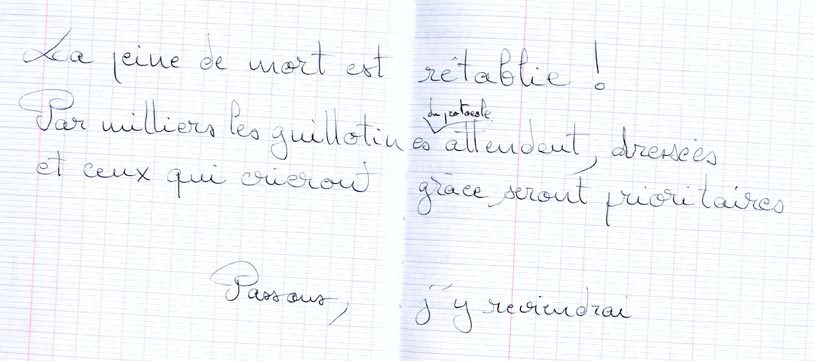 La peine de mort est rétablie !
du protocole
Par milliers les guillotines attendent, dressées
et ceux qui crieront grâce seront prioritaires
Passons, j'y reviendrai